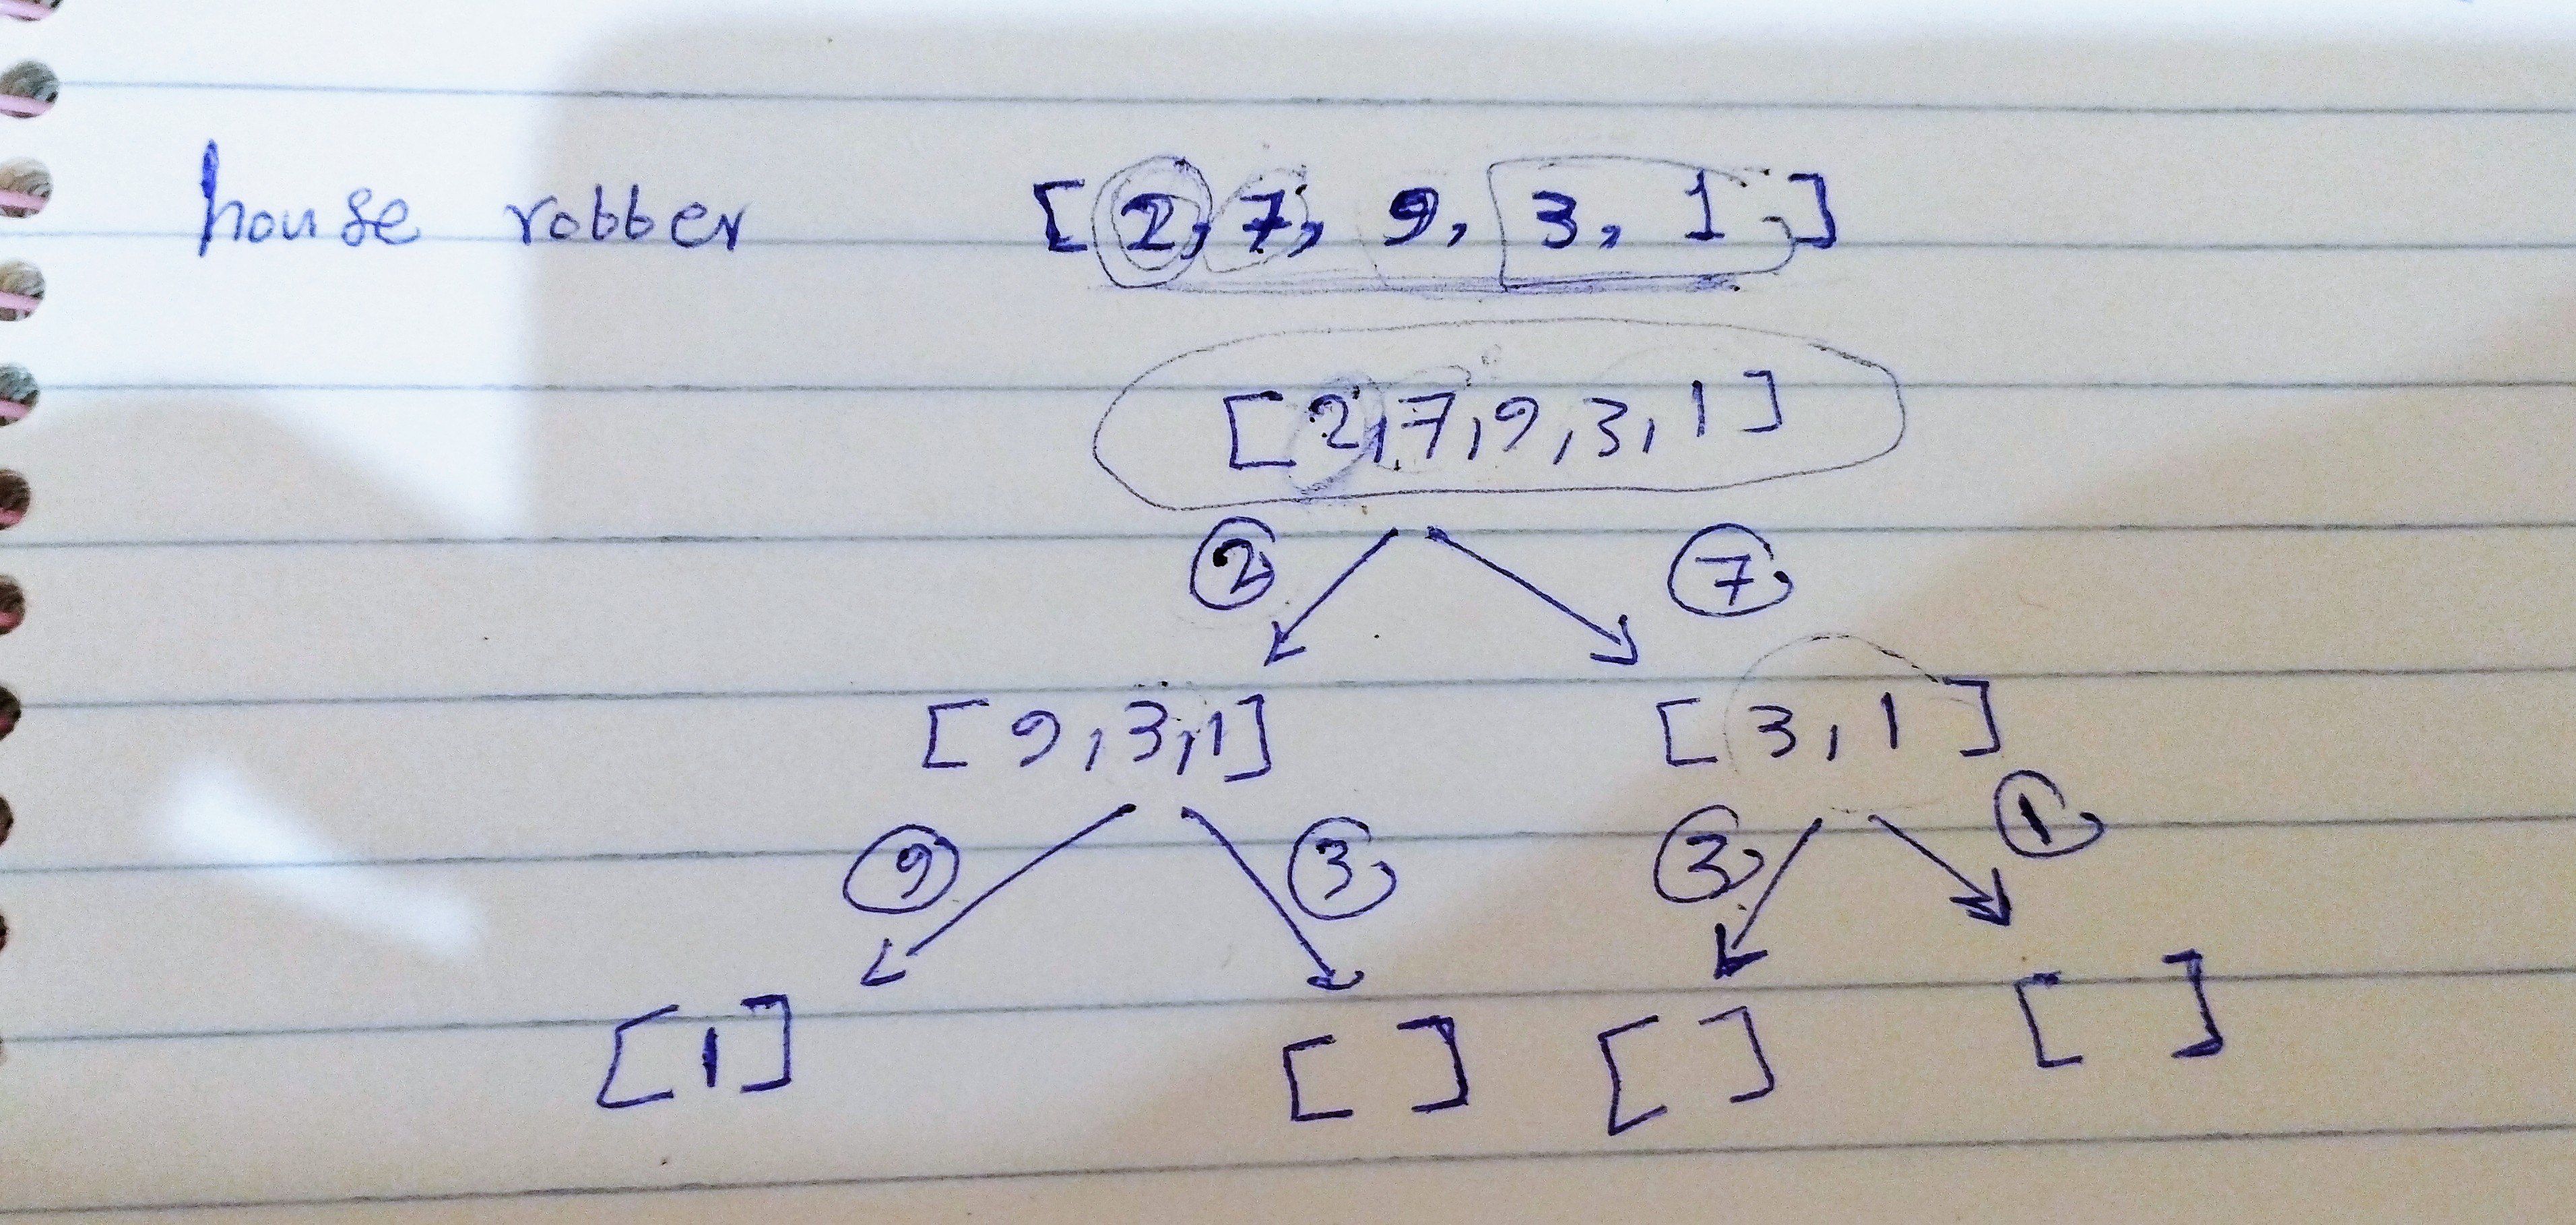 house robber [2, 7, 9, 3, 1]
[2,7,9,3,1]
2 7
[9,3,1] [3,1]
9 3 3 1
[1] [ ] [ ] [ ]